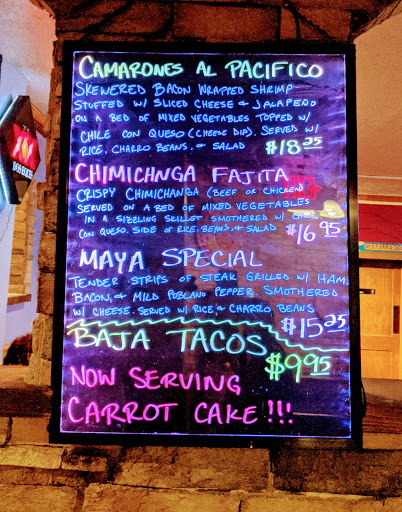 CAMARONES AL PACIFICO
SKEWERED BACON WRAPPED SHRIMP
STUFFED W/ SLICED CHEESE & JALAPENO
ON A BED OF MIXED VEGETABLES TOPPED W/
CHILE CON QUESO (CHEESE DIP). SERVED W/
RICE. CHARRO BEANS. & SALAD $18.25
CHIMICHNGA FAJITA
CRISPY CHIMICHANGA (BEEF OR CHICKEN)
SERVED ON A BED OF MIXED VEGETABLES
IN A SIZZLING SKILLET SMOTHERED W/
CON QUESO. SIDE OF RICE. BEANS. & SALAD $16.95
MAYA SPECIAL
TENDER STRIPS OF STEAK GRILLED W/ HAM.
BACON, & MILD POBLANO PEPPER. SMOTHERED
W/ CHEESE. SERVED W/ RICE & CHARRO BEANS
$15.25
BAJA TACOS
$9.95
NOW SERVING
CARROT CAKE!!!